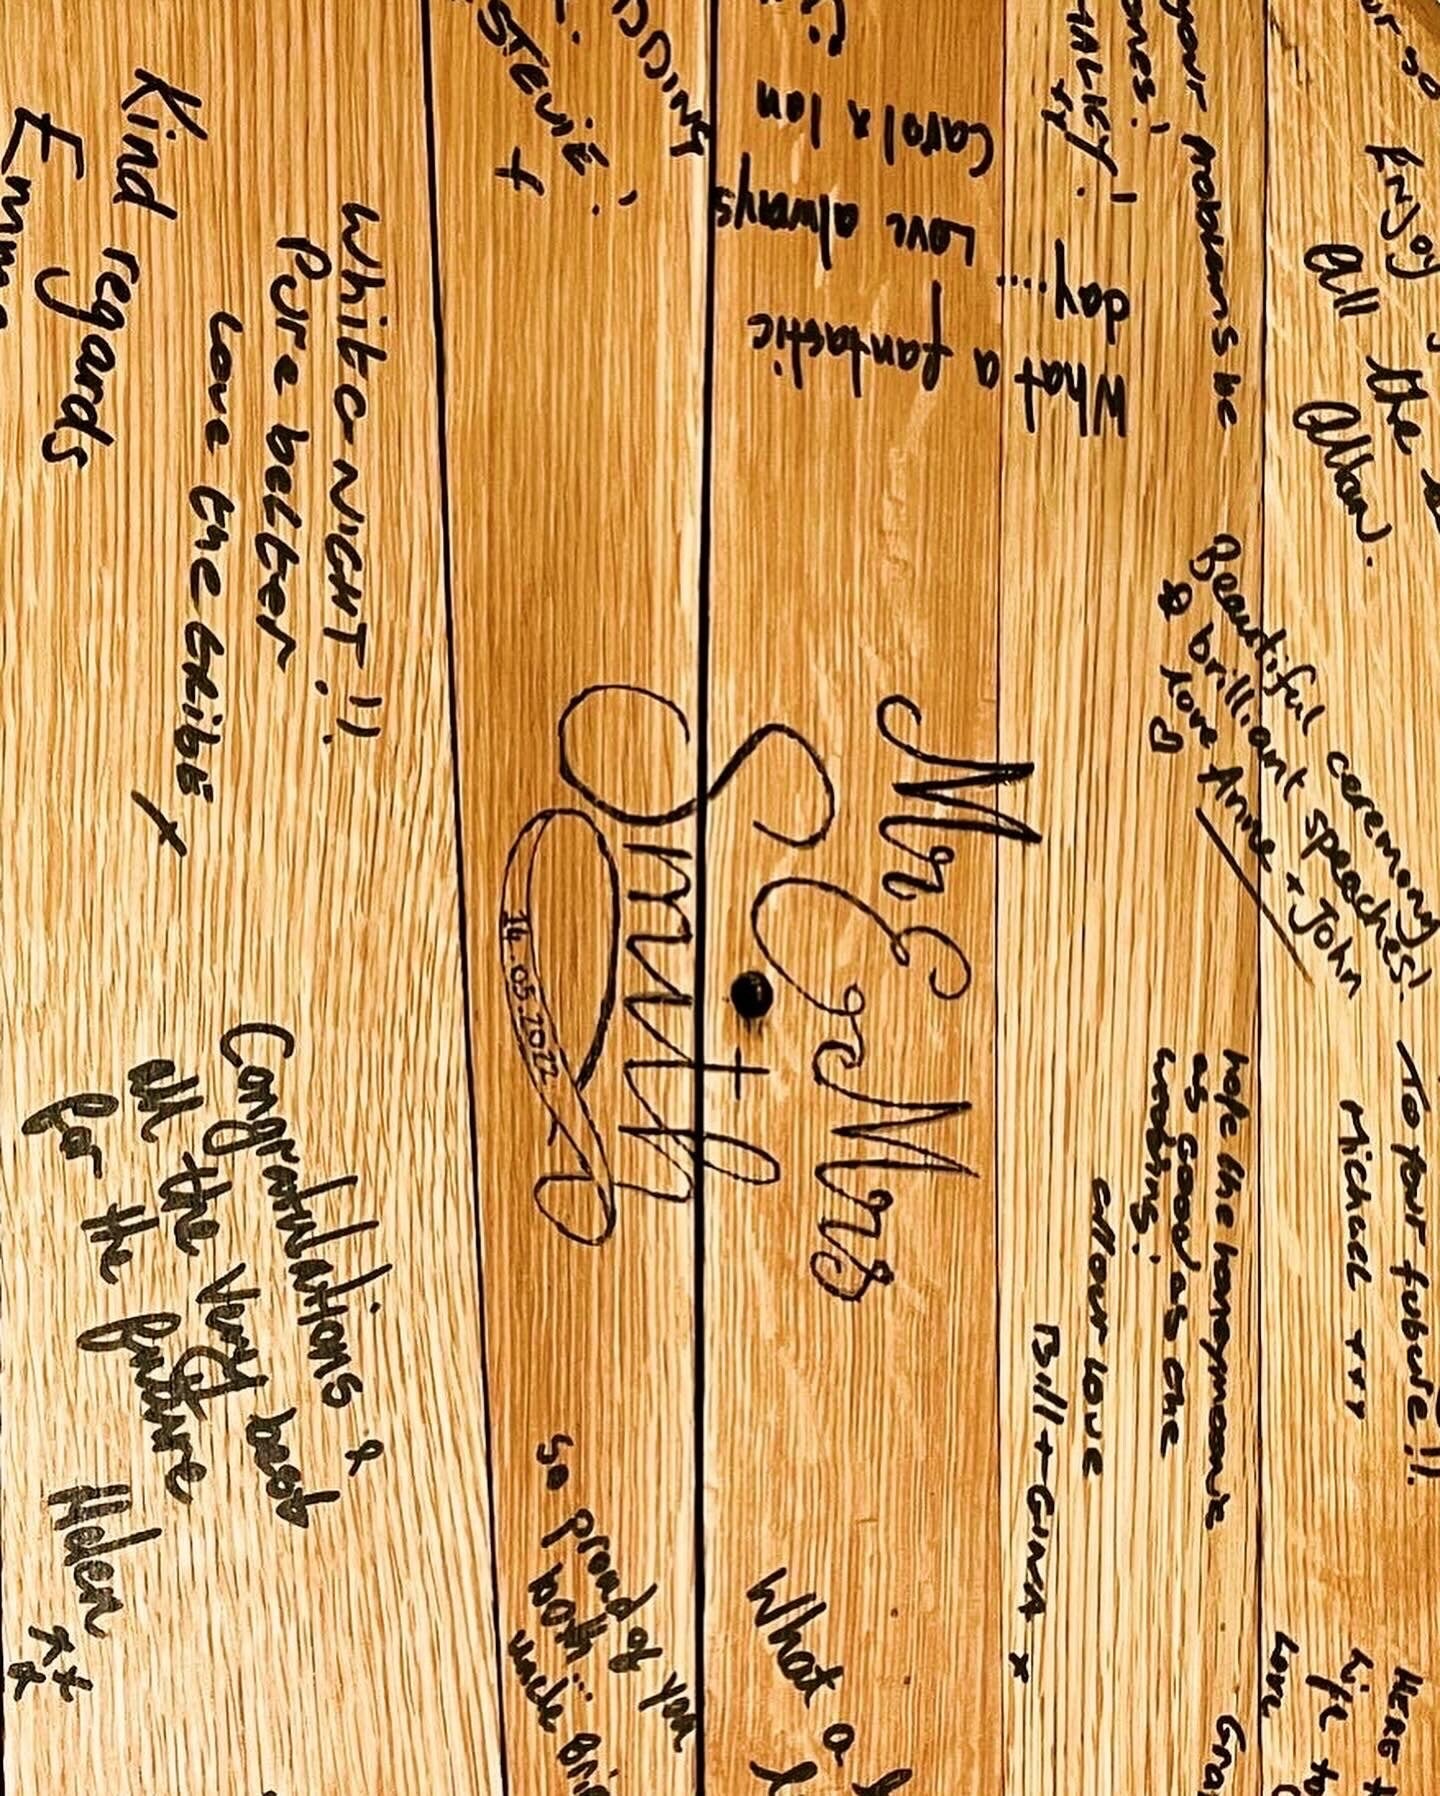 Mr & Mrs
Smith
14.05.2022
your problems be
ones!
What a fantastic
day.....
Love always
Carol & Ian
STEVIE +
NIGHT!!
Pure belter
Love the tribe +
Kind regards
Enjoy
All the
Allan.
Beautiful ceremony
& brilliant speeches!
love Anne + John
To your future!!
Michael xxx
hope the honeymoon is
as good as the
wedding!
all our love
Bill + GINA x
Congratulations &
all the very best
for the future
Helen
xxx
so proud of you
both...
uncle
What a
Life to
Love